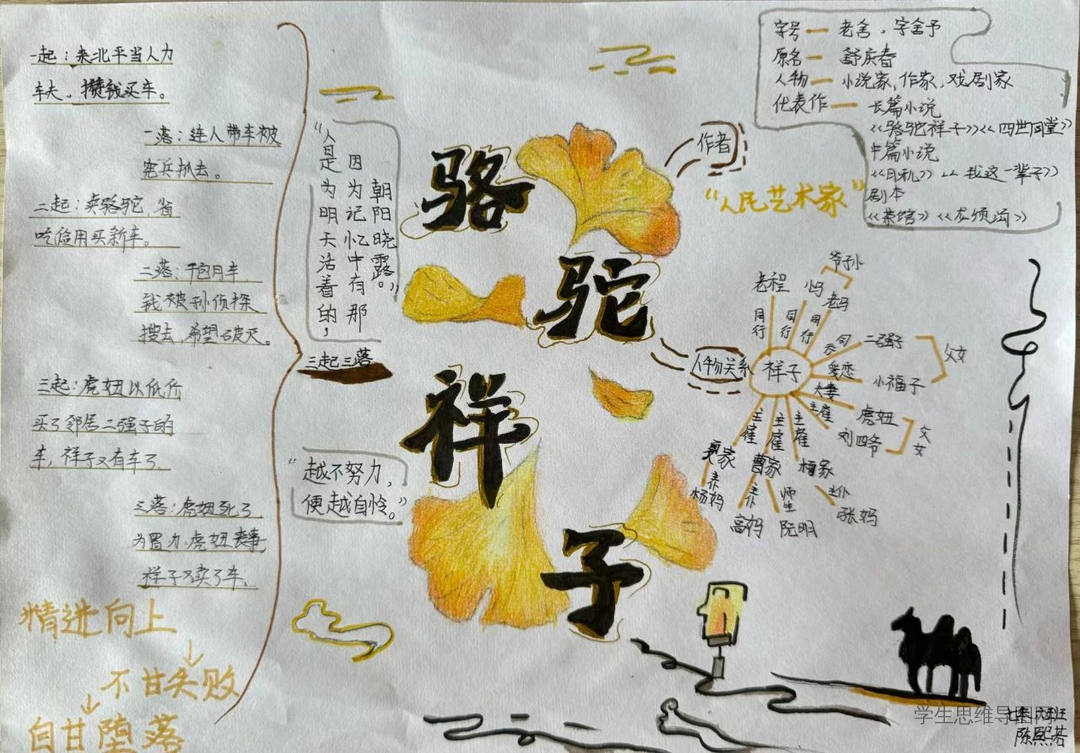 骆驼祥子
一起：来北平当人力
车夫，攒钱买车。
一落：连人带车被
宪兵抓去。
二起：卖骆驼，省
吃俭用买新车。
二落：干包月车
钱被孙侦探
搜去，希望破灭。
三起：虎妞以低价
买了邻居二强子的
车，祥子又有车了。
三落：虎妞死了
为置办虎妞丧事
祥子又卖了车。
精进向上
不甘失败
自甘堕落
三起三落
“人是为明天活着的，
因为记忆中有那
朝阳晓露。”
“越不努力，
便越自怜。”
作者
“人民艺术家”
字号 老舍，字舍予
原名 舒庆春
人物 小说家，作家，戏剧家
代表作 长篇小说
《骆驼祥子》《四世同堂》
中篇小说
《月牙儿》《我这一辈子》
剧本
《茶馆》《龙须沟》
人物关系
祥子
爷子孙
老程
小马
老马
同行
同行
同行
二强子
父女
小福子
恋
夫妻
主雇
虎妞
刘四爷
父女
主雇
主雇
主雇
夏家
曹家
杨妈
高妈
师生
阮明
主仆
张妈
学生思维导图网
陈熙若